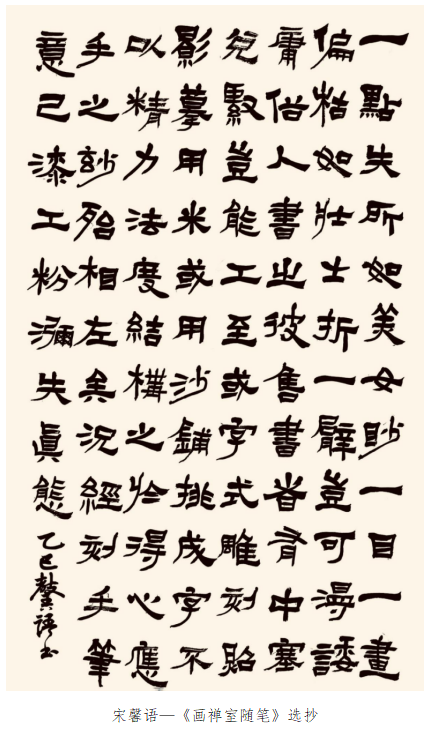 一點失所如美女眇一目一畫
偏枯如壯士折一臂豈可漫諉
庸俗人書出彼售書者中塞
豈能工至或字式雕刻貽
影摹用米或用沙鋪挑成字不
以精力法度結構之於得心應
手之玅殆相左矣況經刻手筆
意已漆工粉瀰失眞態
乙巳馨語书
宋馨语—《画禅室随笔》选抄